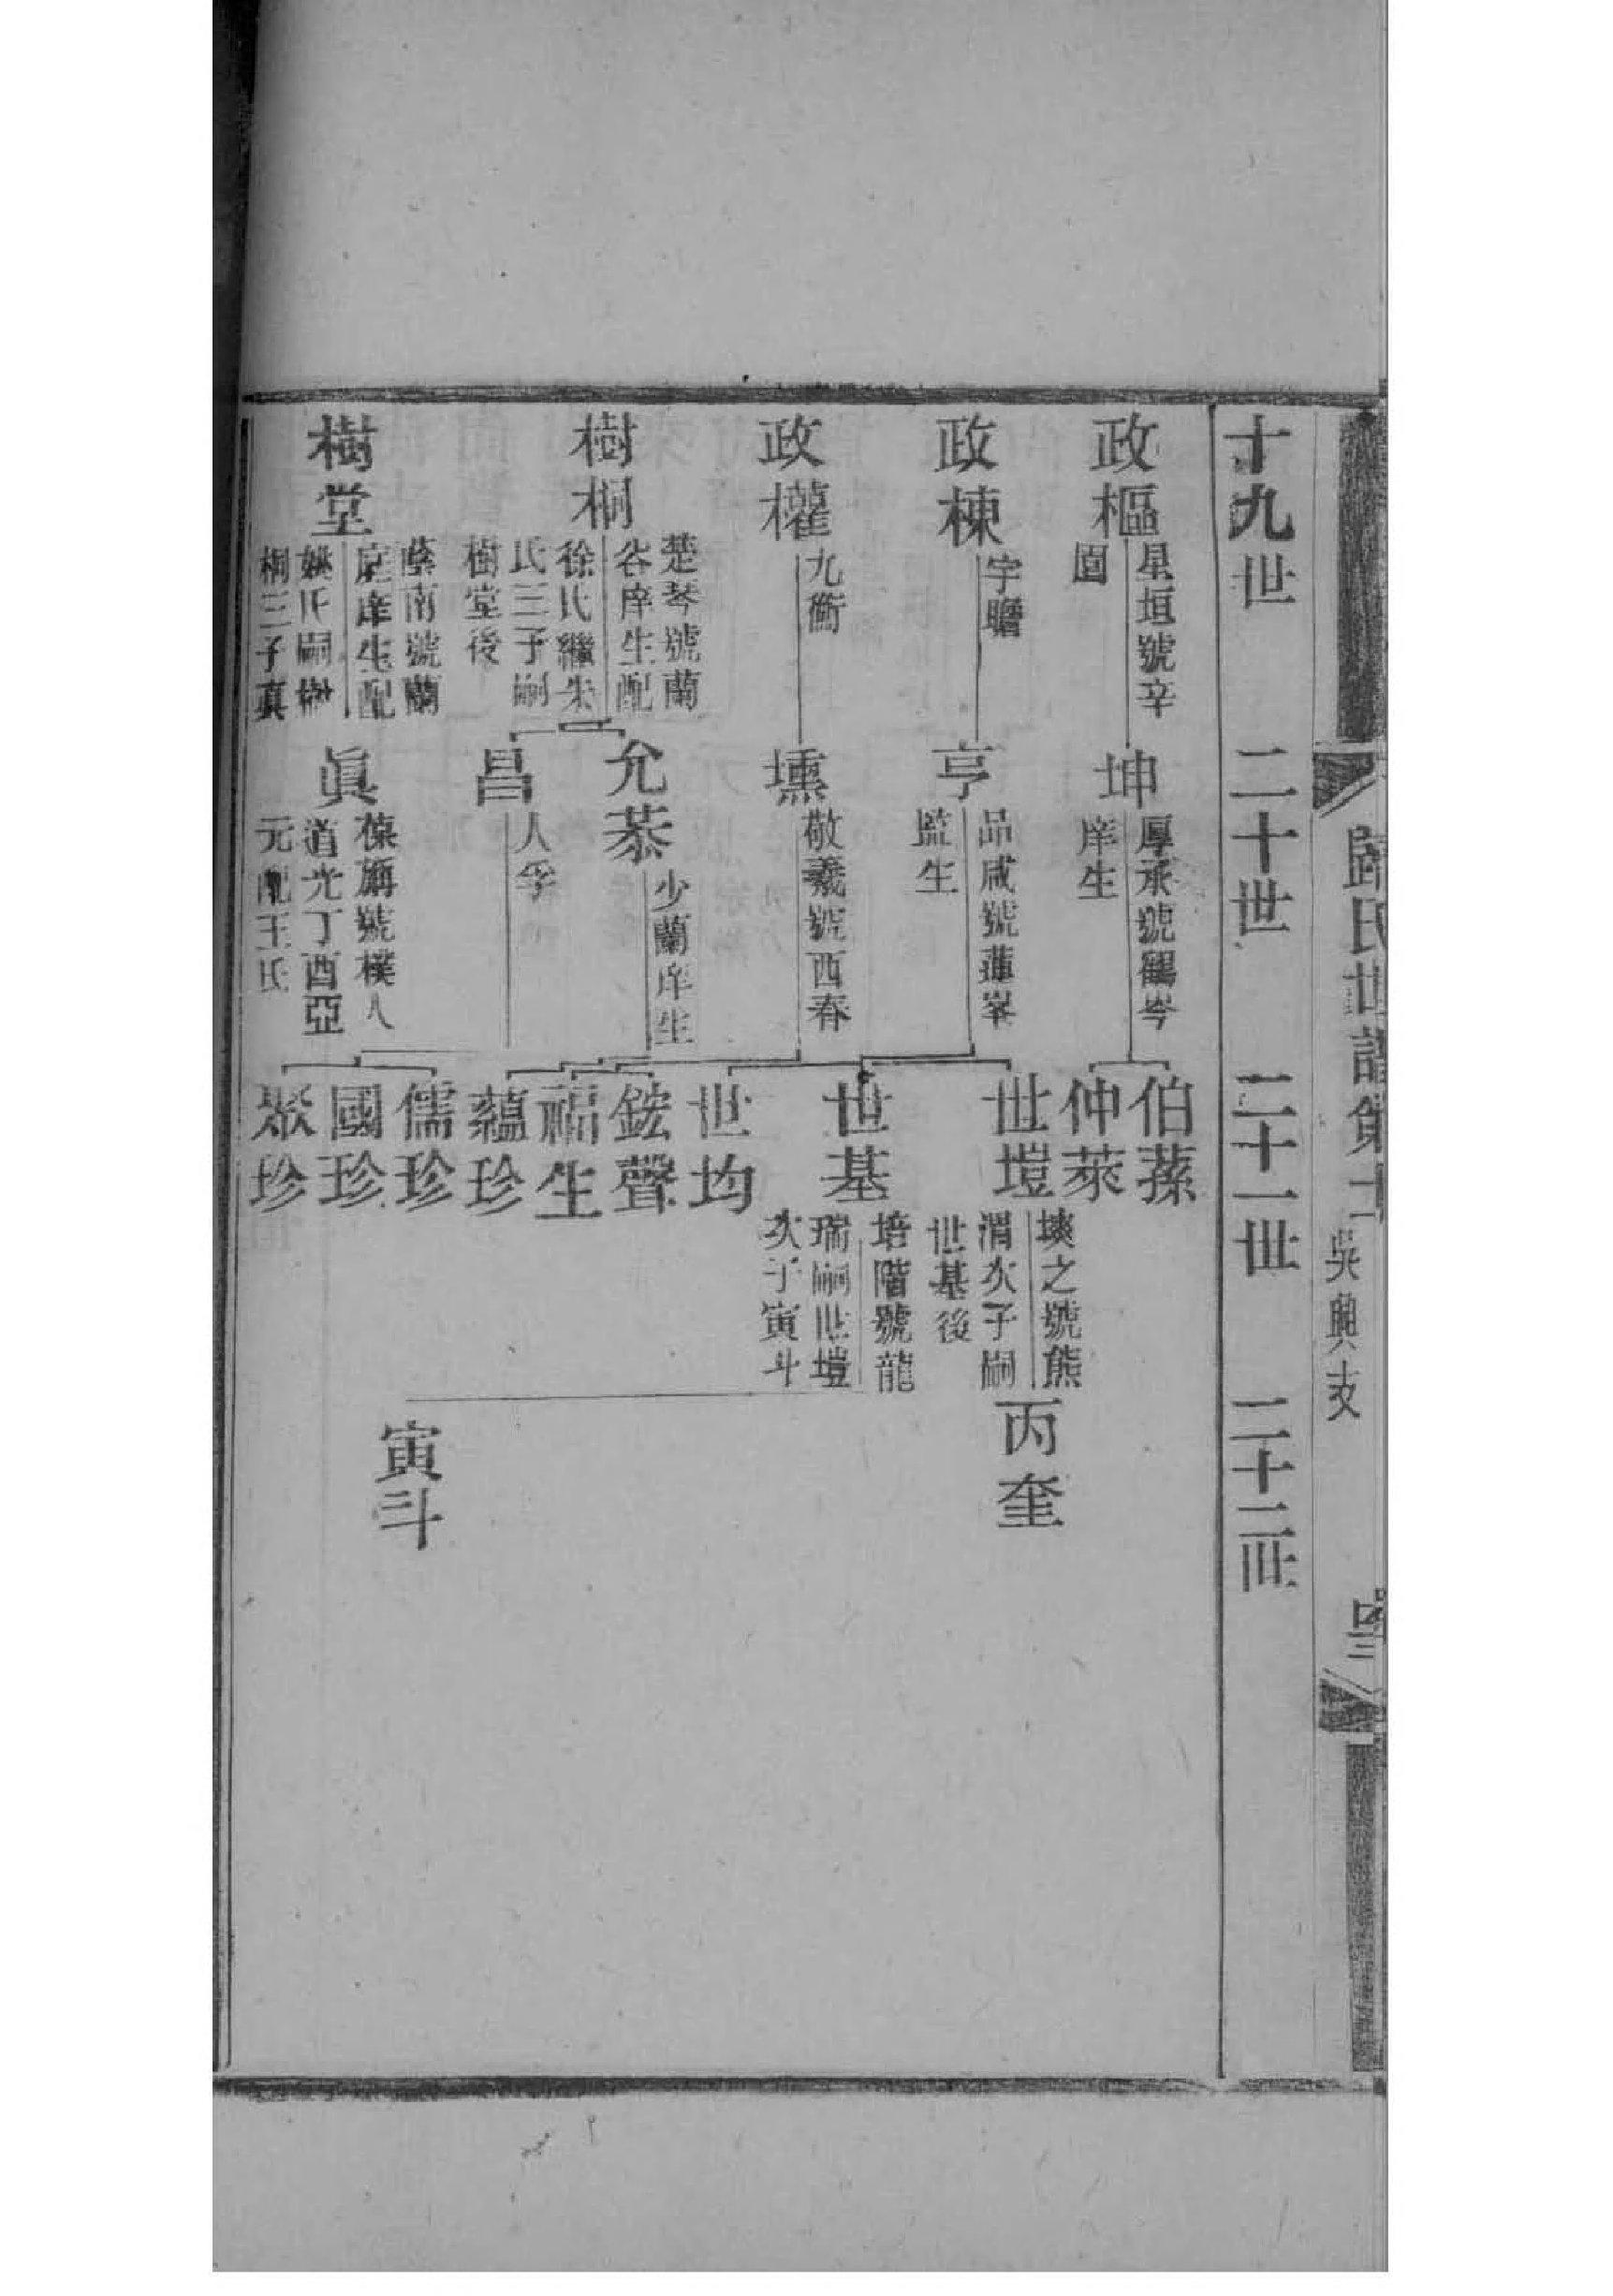 歸氏世譜第
吳興支
十九世
二十世
二十一世
二十二世
政樞
星垣號辛
園
政棟
宇瞻
政權
九衢
樹桐
楚琴號蘭
谷庠生配
徐氏繼朱
氏三子嗣
樹堂後
樹堂
蔭南號蘭
庭庠生配
姚氏嗣樹
桐三子真
坤
厚承號鶴岑
庠生
亨
品咸號蓮峯
監生
壎
敬羲號西春
允恭
少蘭庠生
昌
人孚
眞
葆旃號樸人
道光丁酉亞
元配王氏
伯蓀
仲萊
世塏
塽之號熊
渭次子嗣
世基後
世基
培階號龍
瑞嗣世塏
次子寅斗
世均
鋐聲
福生
蘊珍
儒珍
國珍
聚珍
丙奎
寅斗